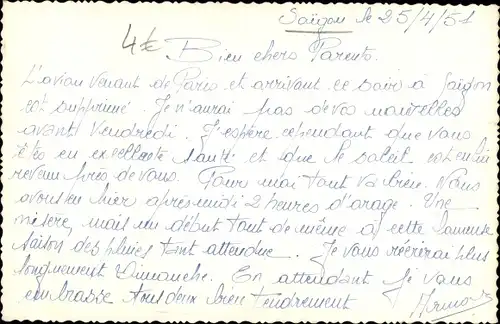 Saïgon le 25/4/51
4€
Bien chers Parents.
L'avion venant de Paris et arrivant ce soir à Saïgon
est supprimé. Je n'aurai pas de vos nouvelles
avant Vendredi. J'espère cependant que vous
êtes en excellente santé et que le soleil est enfin
revenu près de vous. Pour moi tout va bien. Nous
avons eu hier après-midi 2 heures d'orage. Une
misère, mais un début tout de même à cette fameuse
saison des pluies tant attendue. Je vous réécrirai plus
longuement Dimanche. En attendant je vous
embrasse tous deux bien tendrement